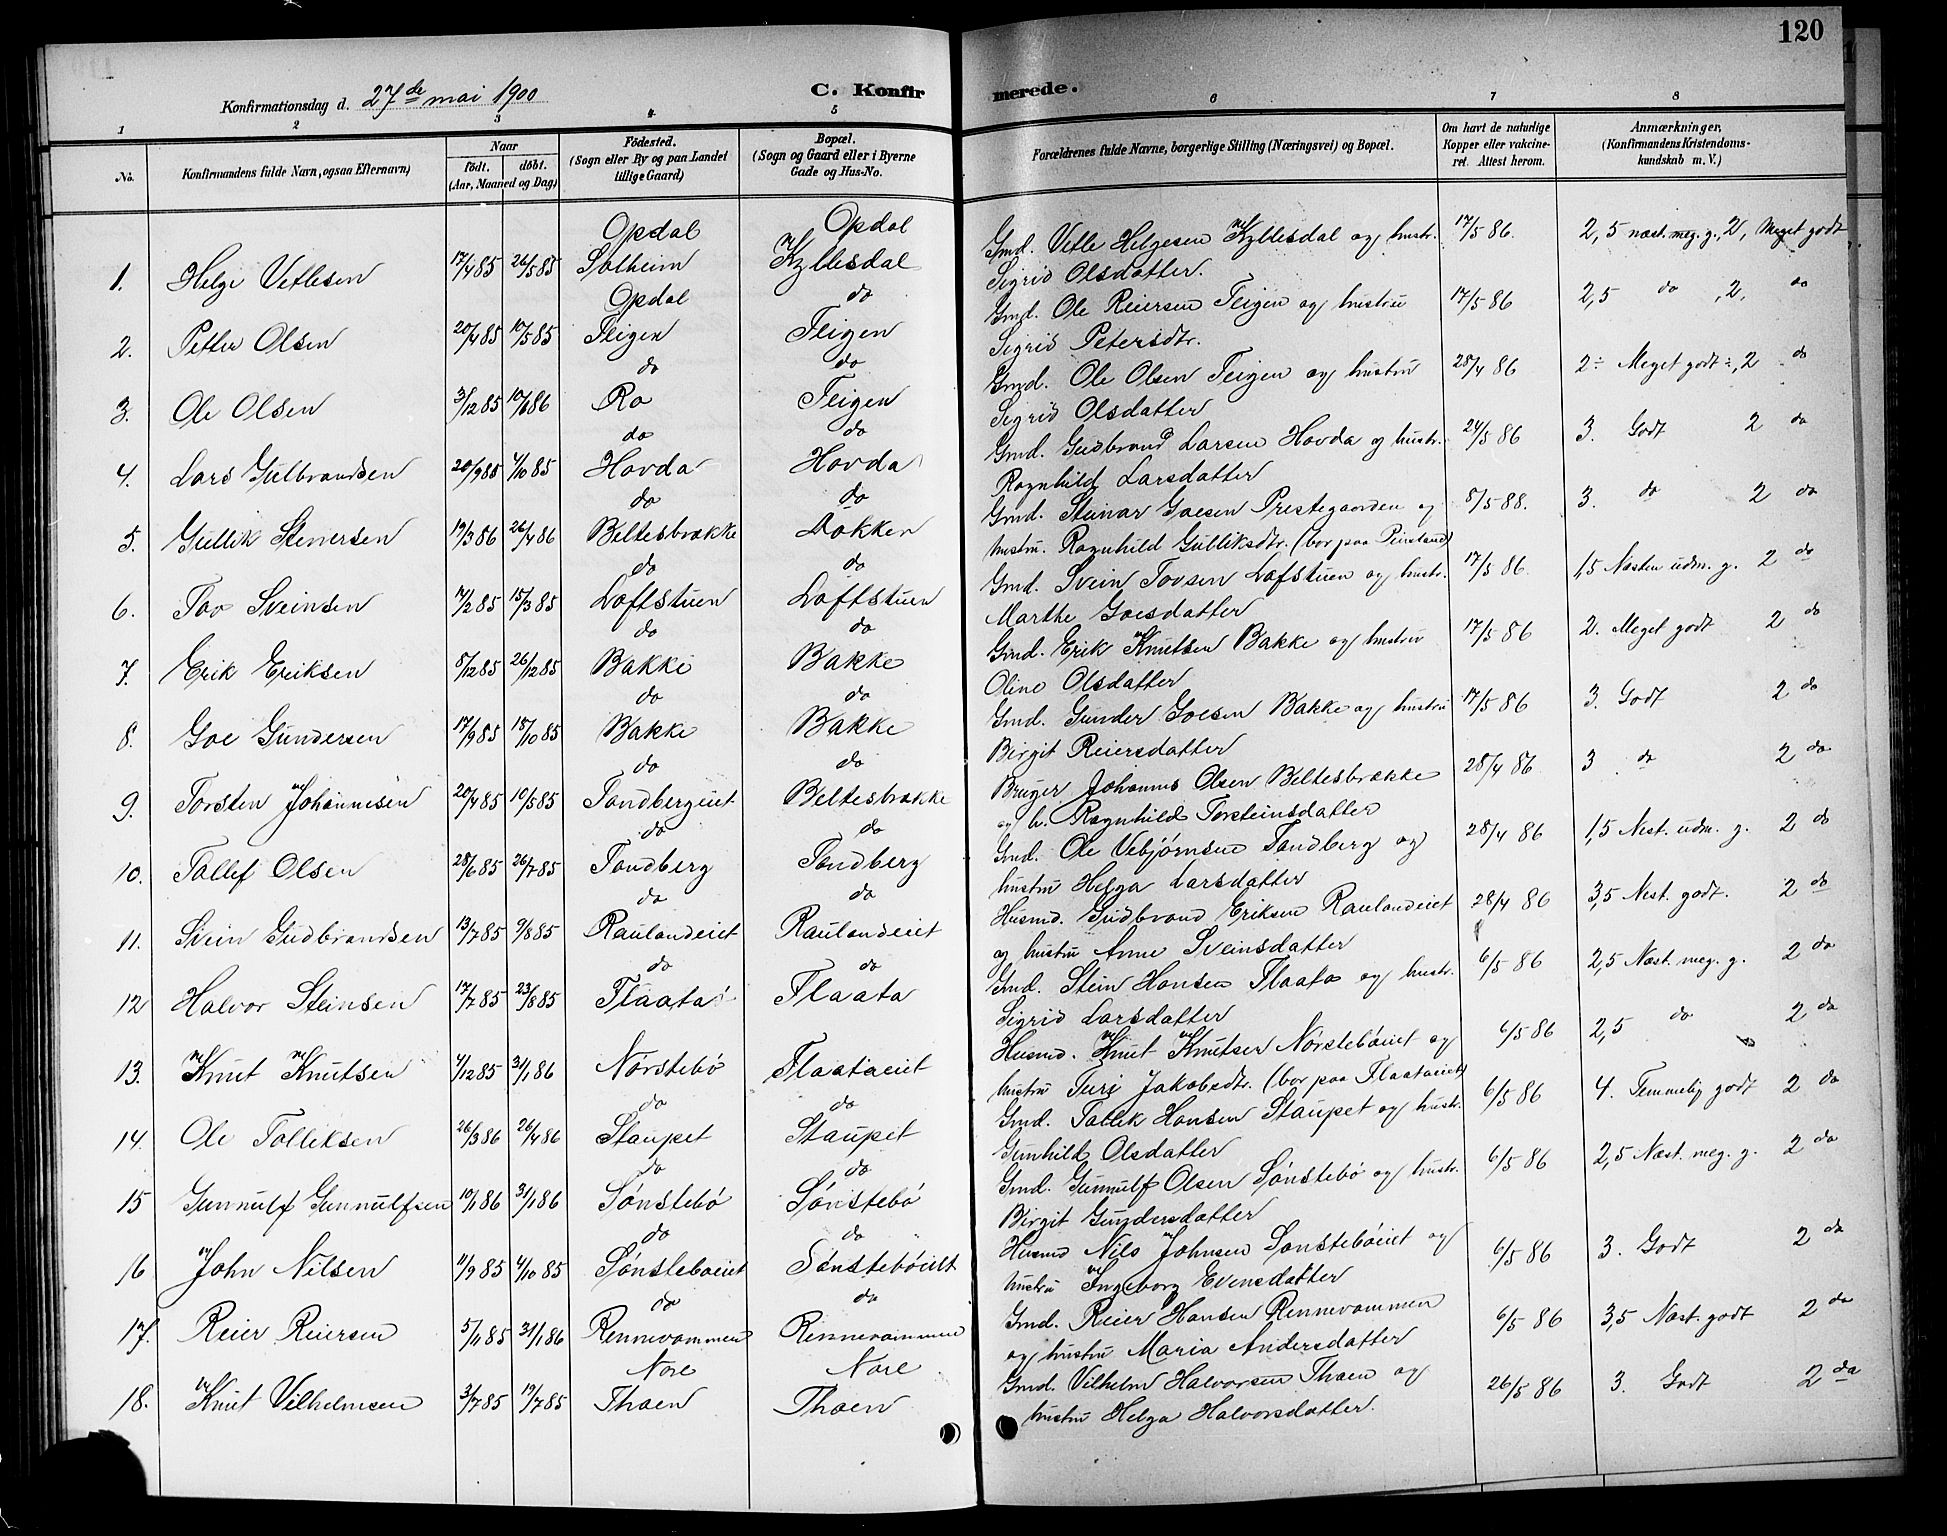 120
Konfirmationsdag d. 27de mai 1900
C. Konfirmerede.
1 2 3 4 5 6 7 8
No.
Konfirmandens fulde Navn, ogsaa Efternavn)
Naar
Født. døbt.
(Aar, Maaned og Dag)
Fødested.
(Sogn eller By og paa Landet
tillige Gaard)
Bopæl.
(Sogn og Gaard eller i Byerne
Gade og Hus-No.
Forældrenes fulde Navne, borgerlige Stilling (Næringsvei) og Bopæl.
Om havt de naturlige
Kopper eller vakcine-
ret. Attest herom.
Anmærkninger,
(Konfirmandens Kristendoms-
kundskab m. V.)
Opdal Opdal Gmd. Vetle Helgesen Kyllesdal og hustr. 17/5 86. 2,5 næst. meg. g., 2, Meget godt
1. Helge Vetlesen 17/4 85 26/5 85 Solheim Kyllesdal Sigrid Olsdatter.
Opdal do Gmd. Ole Reiersen Teigen og hustru 17/5 86 2,5 do , 2, do
2. Petter Olsen 20/4 85 10/5 85 Teigen Teigen Sigrid Petersdtr.
do do Gmd. Ole Olsen Teigen og hustru 28/4 86 2÷ Meget godt÷, 2 do
3. Ole Olsen 3/12 85 10/1 86 Ro Teigen Sigrid Olsdatter
do do Gmd. Gudbrand Larsen Hovda og hustr. 24/5 86 3. Godt 2 do
4. Lars Gulbrandsen 20/9 85 4/10 85 Hovda Hovda Ragnhild Larsdatter
do do Gmd. Steinar Goesen Prestegaarden og 8/5 88. 3. do 2 do
5. Gullik Stenersen 19/3 86 26/4 86 Beltesbrække Dokken hustru. Ragnhild Gulliksdtr. (bor paa
do do Gmd. Svein Tovsen Loftstuen og hustr. 17/5 86 1,5 Næsten udm. g. 2 do
6. Tov Sveinsen 14/2 85 15/3 85 Loftstuen Loftstuen Marthe Goesdatter
do do Gmd. Erik Knutsen Bakke og hustru 17/5 86 2. Meget godt 2 do
7. Erik Eriksen 8/12 85 26/12 85 Bakke Bakke Oline Olsdatter
do do Gmd. Gunder Goesen Bakke og hustru 17/5 86 3. Godt 2 do
8. Goe Gundersen 17/9 85 18/10 85 Bakke Bakke Birgit Reiersdatter
do do Bruger Johannes Olsen Beltesbrække 28/4 86 3 do 2 do
9. Torsten Johannesen 20/4 85 10/5 85 Tandbergeiet Beltesbrække og h. Ragnhild Torsteinsdatter
do do Gmd. Ole Vebjørnsen Tandberg og 28/4 86 1,5 Nest. udm. g. 2 do
10. Tollef Olsen 28/6 85 26/7 85 Tandberg Tandberg hustru Helga Larsdatter
do do Husmd. Gudbrand Eriksen Raulandeiet 28/4 86 3,5 Nest. godt. 2 do
11. Svein Gudbrandsen 13/7 85 9/8 85 Raulandeiet Raulandeiet og hustru Anne Sveinsdatter
do do Gmd. Stein Hansen Flaata og hustr. 6/5 86 2,5 Næst. meg. g. 2 do
12 Halvor Steinsen 17/7 85 23/8 85 Flaata Flaata Sigrid Larsdatter
Husmd. Knut Knutsen Nørstebøeiet og 6/5 86 2,5 do 2 do
13. Knut Knutsen 4/12 85 31/1 86 Nørstebø Flaataeiet hustru Turi Jakobsdtr. (bor paa Flaataeiet)
do do Gmd. Tollik Hansen Staupet og hustr. 6/5 86 4. Temmelig godt 2 do
14. Ole Tolliksen 26/3 86 26/4 86 Staupet Staupet Gunhild Olsdatter
do do Gmd. Gunnulf Olsen Sønstebø og hustr. 6/5 86 2,5 Næst. meg. g. 2 do
15 Gunnulf Gunnulfsen 10/1 86 31/1 86 Sønstebø Sønstebø Birgit Gundersdatter
do do Husmd Nils Johnsen Sønstebøeiet og 6/5 86 3. Godt 2 do
16 John Nilsen 11/9 85 4/10 85 Sønstebøeiet Sønstebøeiet hustru Ingeborg Evensdatter
do do Gmd. Reier Hansen Rennevammen 6/5 86 3,5 Næst. godt 2 do
17. Reier Reiersen 5/11 85 31/1 86 Rennevammen Rennevammen og hustru Maria Andersdatter
Nore Nore Gmd. Vilhelm Halvorsen Thoen og 26/5 86 3. Godt 2 do
18. Knut Vilhelmsen 3/7 85 19/7 85 Thoen Thoen hustru Helga Halvorsdatter.